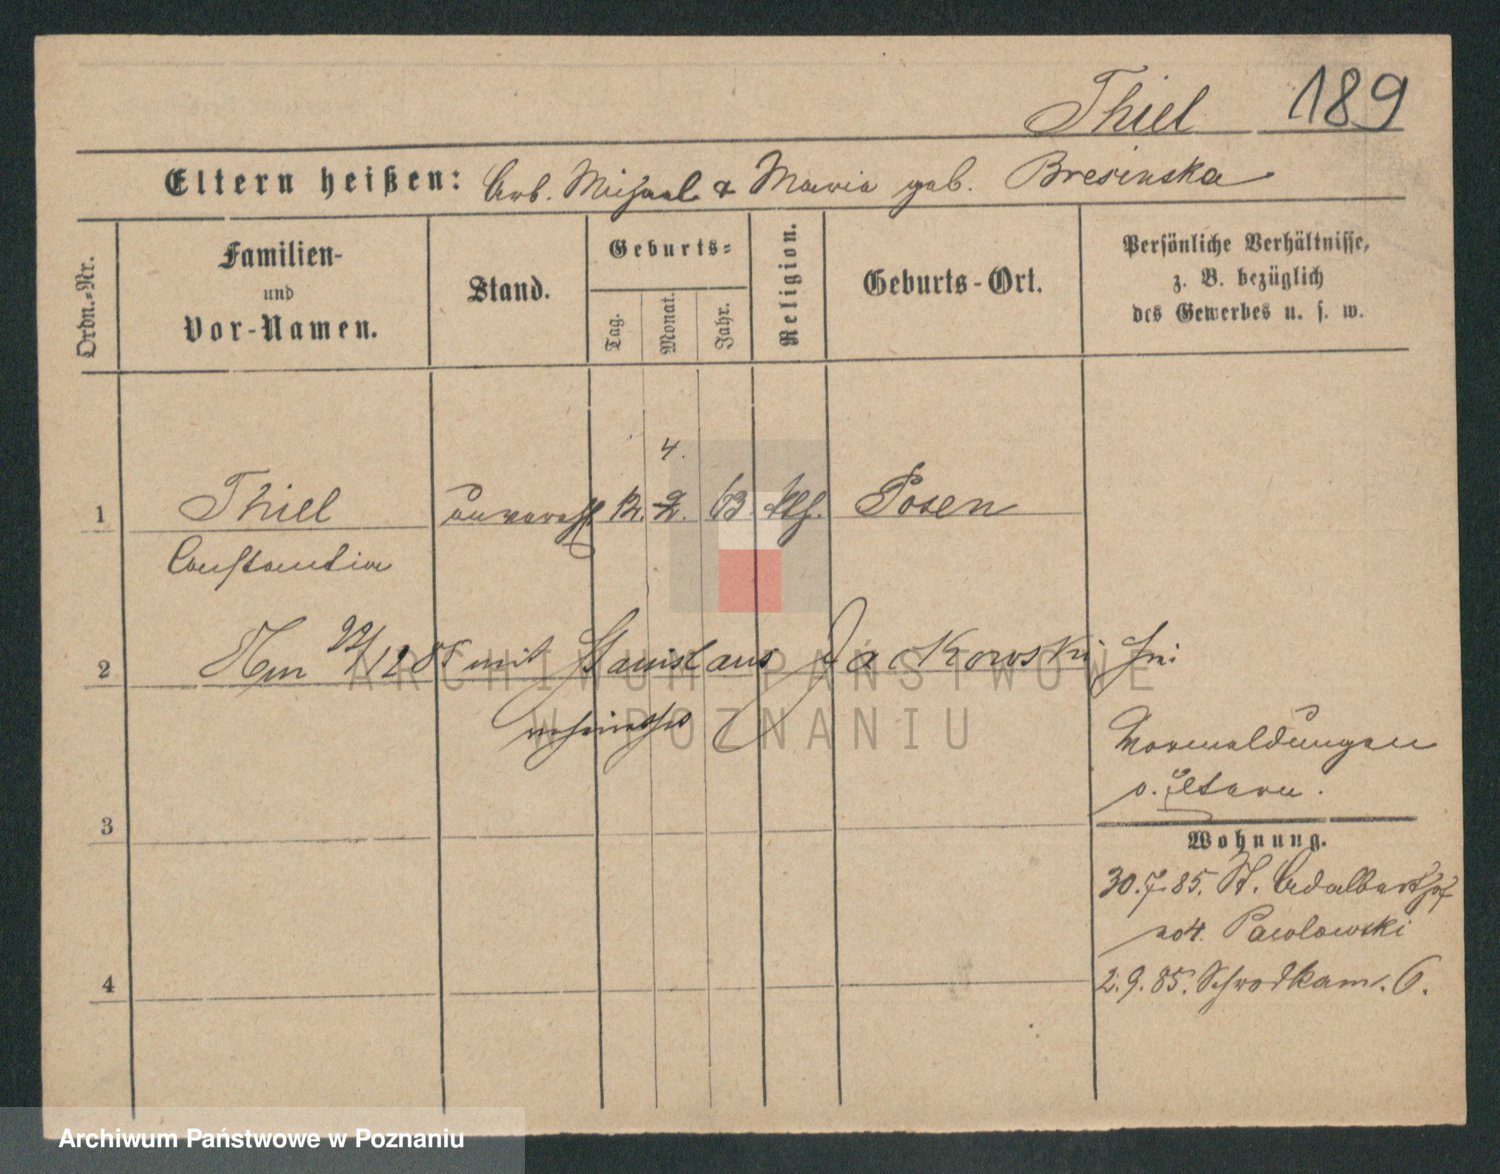 Thiel 189
Eltern heißen: Arb. Michael & Maria geb. Bresinska
Ordn.-Nr.
Familien-
und
Vor-Namen.
Stand.
Geburts-
Tag.
Monat.
Jahr.
Religion.
Geburts-Ort.
Persönliche Verhältnisse,
z. B. bezüglich
des Gewerbes u. s. w.
4.
1 Thiel unvereh. 12. 2. 63. kth. Posen
Constantia
2 Am 22/12 85 mit Stanislaus Jackowski
verheirathet
Vormeldungen
b. Eltern.
3
Wohnung.
30.7.85. St. Adalbertstr
No 4. Pawlowski
4
2.9.85. Schrodkam. 6.
ARCHIWUM PAŃSTWOWE
W POZNANIU
Archiwum Państwowe w Poznaniu